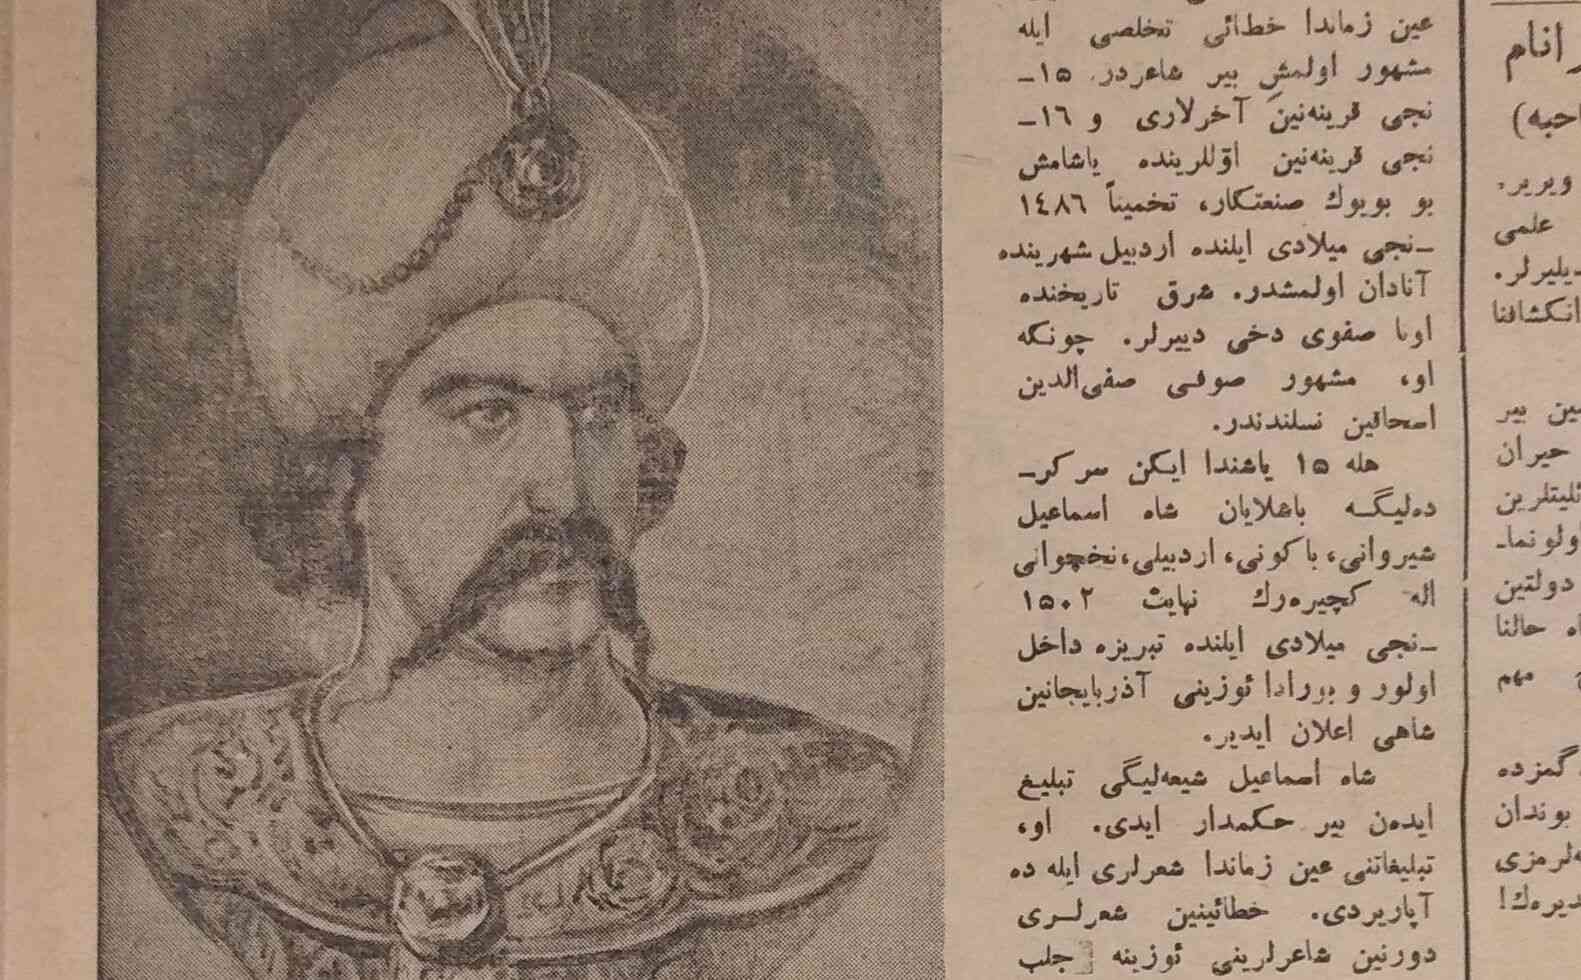 عین زماندا خطائی تخلصی ایله
مشهور اولمش بیر شاعردر. ۱۵ـ
نجی قرینه‌نین آخرلاری و ۱٦ـ
نجی قرینه‌نین اوّللرینده یاشامش
بو بویوك صنعتکار، تخمیناً ۱٤۸٦
ـنجی میلادی ایلنده اردبیل شهرینده
آنادان اولمشدر. شرق تاریخنده
اونا صفوی دخی دییرلر. چونکه
او، مشهور صوفی صفی‌الدین
اسحاقین نسلندندر.
هله ۱۵ یاشندا ایکن سرکر‌ـ
ده‌لیگـه باشلایان شاه اسماعیل
شیروانی، باکونی، اردبیلی، نخچوانی
اله کچیره‌رك نهایت ۱۵۰۲
ـنجی میلادی ایلنده تبریزه داخل
اولور و بورادا ئوزینی آذربایجانین
شاهی اعلان ایدیر.
شاه اسماعیل شیعه‌لیگی تبلیغ
ایده‌ن بیر حکمدار ایدی. او،
تبلیغاتنی عین زماندا شعرلری ایله ده
آپاریردی. خطائینین شعرلـری
دورنین شاعرلرینی ئوزینه جلب
انام
احبه)
ویریر.
علمی
دیلیرلر.
انکشافنا
بیر
حیران
دولتین
حالنا
مهم
گمزده
بوندان